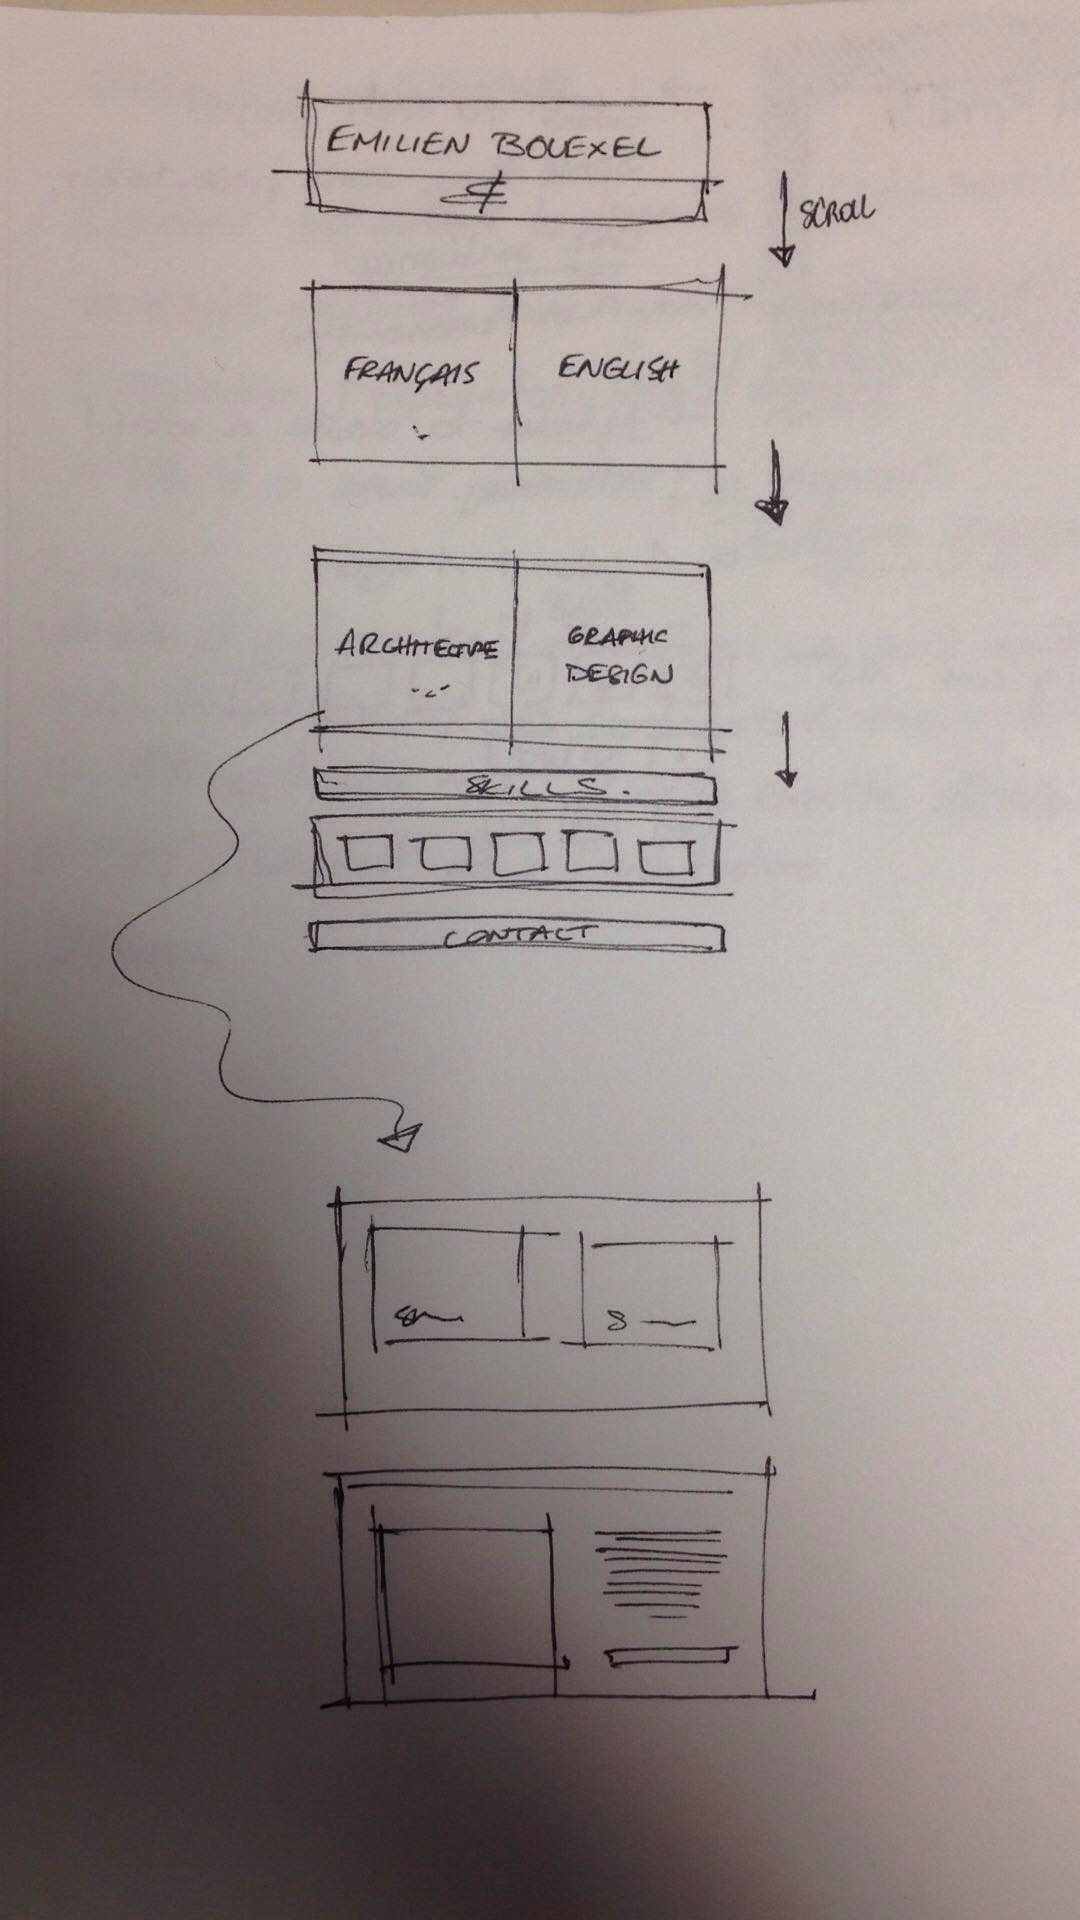 EMILIEN BOUEXEL
SCROLL
FRANÇAIS
ENGLISH
ARCHITECTURE
GRAPHIC
DESIGN
SKILLS.
CONTACT